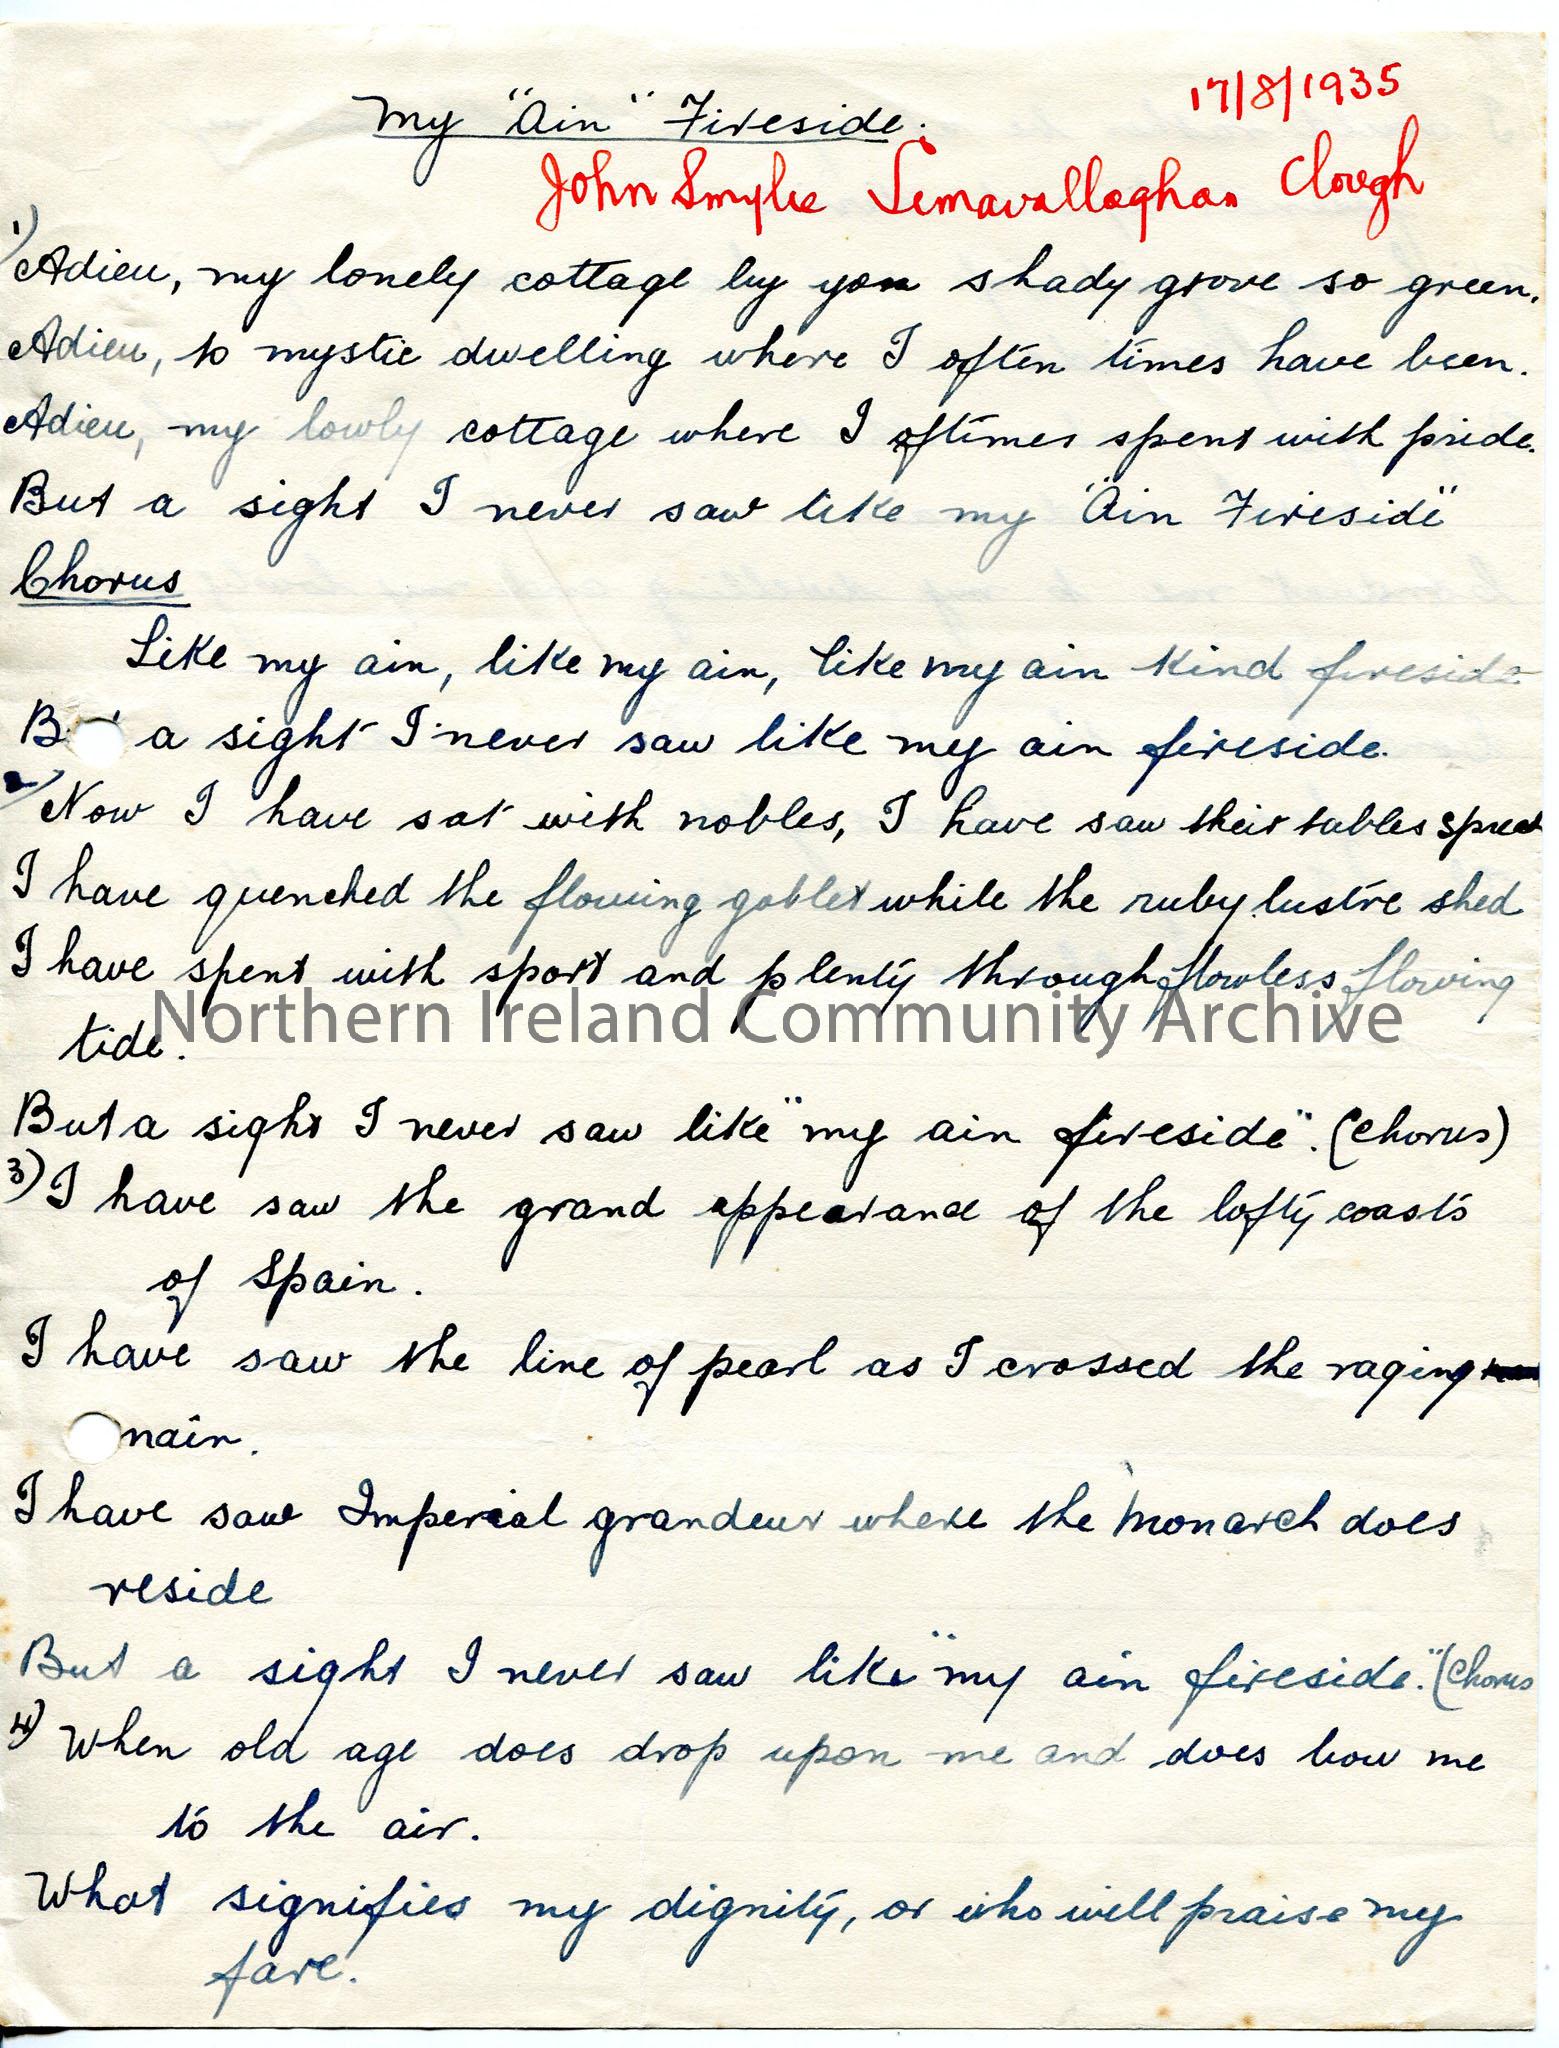 17/8/1935
My "Ain" Fireside.
John Smylie Lemavallaghan Clough
1) Adieu, my lonely cottage by yon shady grove so green.
Adieu, to mystic dwelling where I often times have been.
Adieu, my lowly cottage where I oftimes spent with pride.
But a sight I never saw like my "Ain Fireside"
Chorus
Like my ain, like my ain, like my ain kind fireside
B a sight I never saw like my ain fireside.
2) Now I have sat with nobles, I have saw their tables spread
I have quenched the flowing goblet while the ruby lustre shed
I have spent with sport and plenty through flowless flowing
tide.
Northern Ireland Community Archive
But a sight I never saw like "my ain fireside". (Chorus)
3) I have saw the grand appearance of the lofty coasts
of Spain.
I have saw the line of pearl as I crossed the raging
main.
I have saw Imperial grandeur where the Monarch does
reside
But a sight I never saw like "my ain fireside." (Chorus
4) When old age does drop upon me and does bow me
to the air.
What signifies my dignity, or who will praise my
fare.